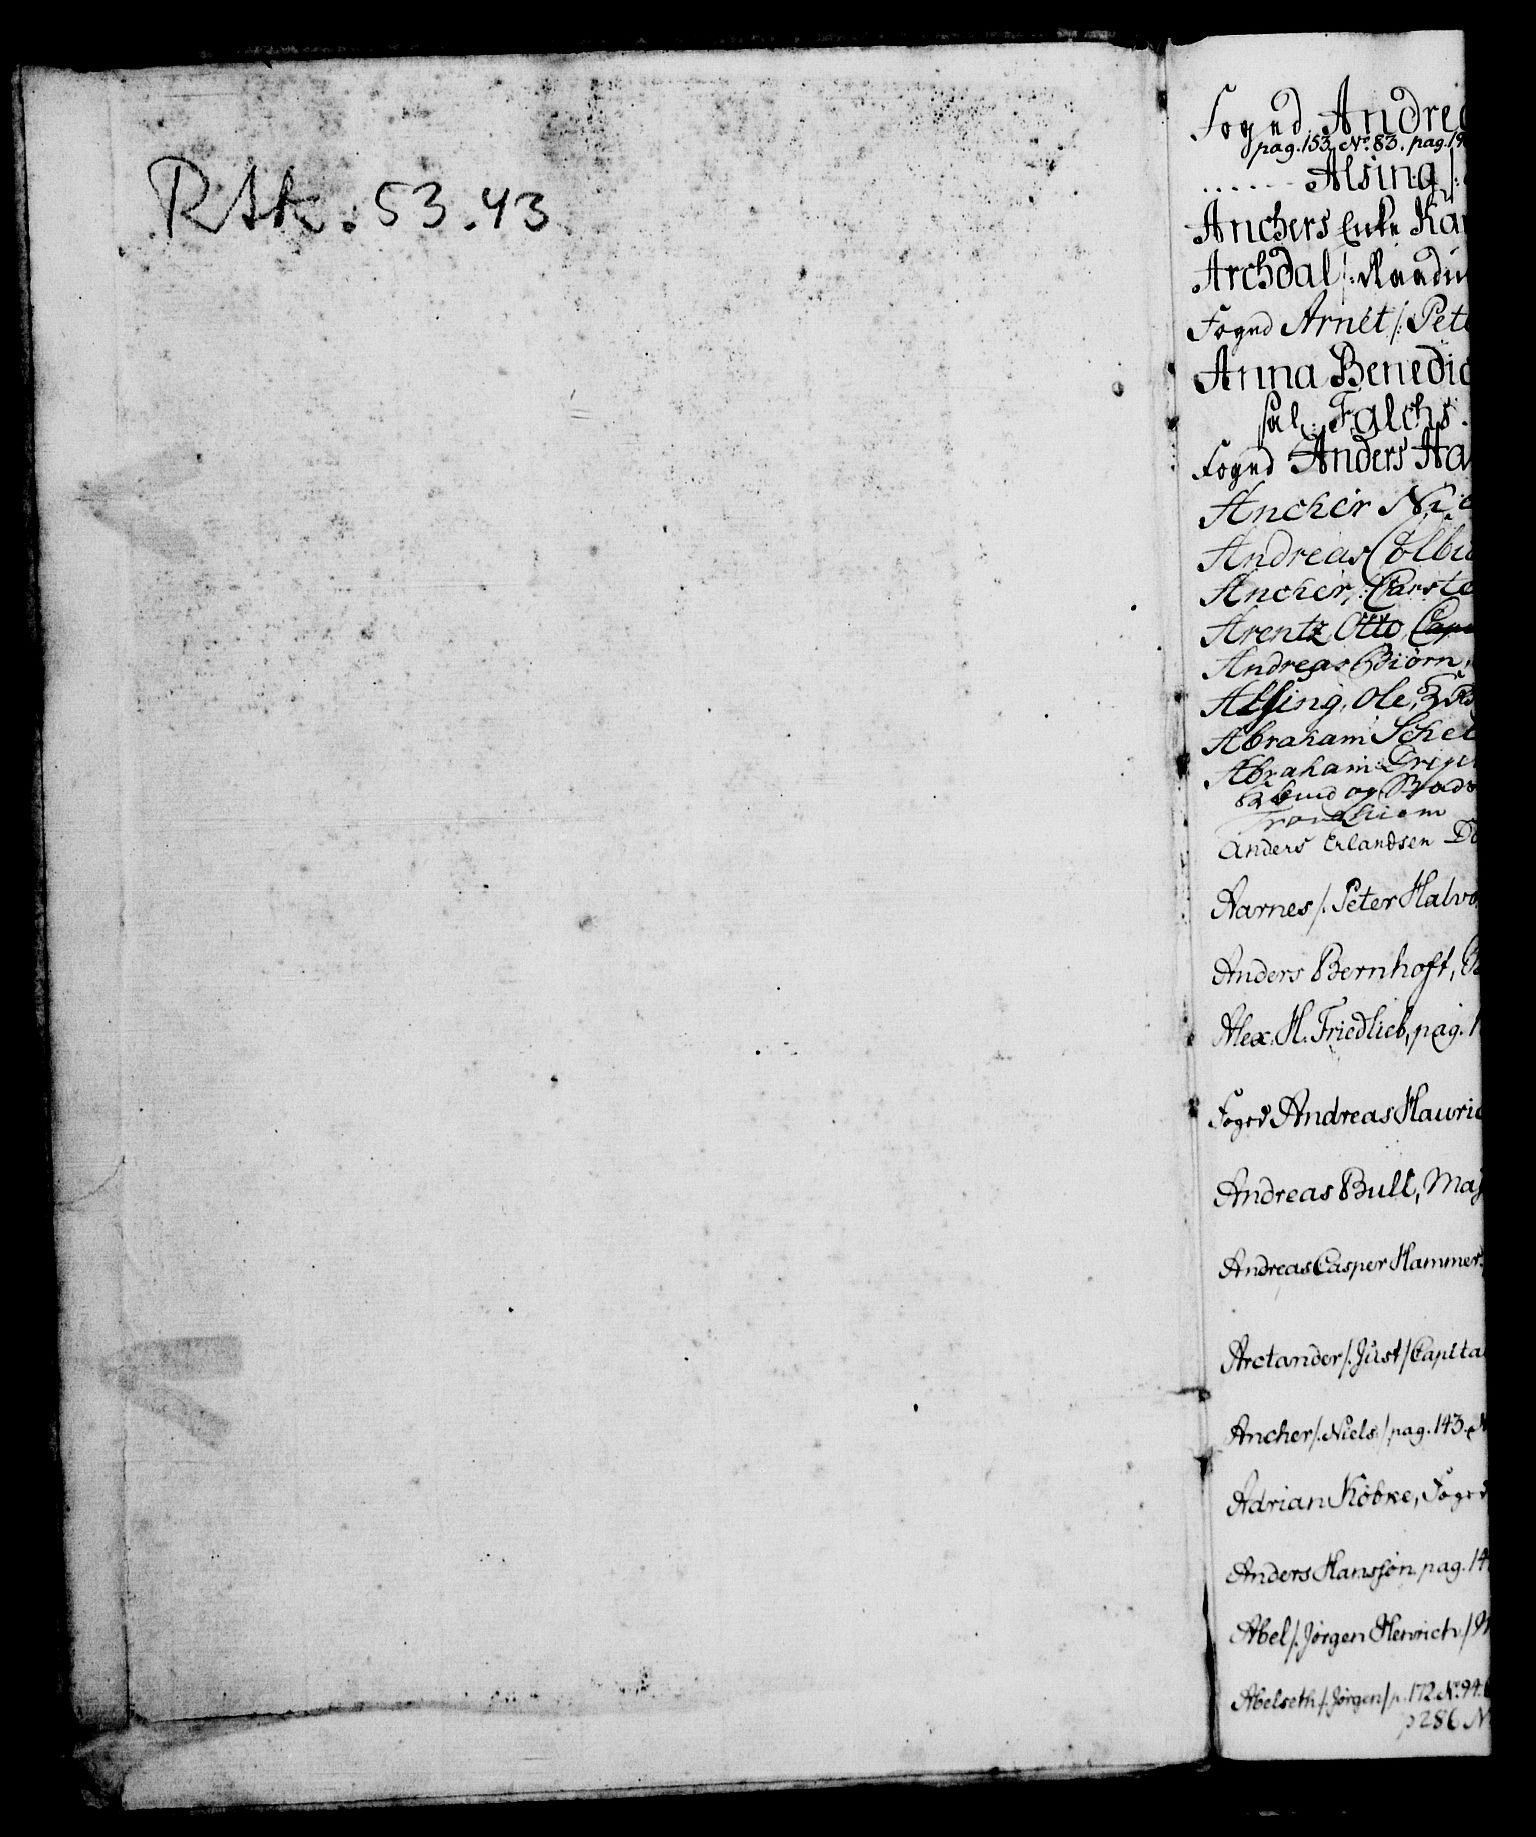 Rtk. 53.43
Foged Andrea
pag. 153. No. 83. pag. 19
...... Alsing /:
Anchers Enke Ka
Archdal /: Raad
Foged Arnet /: Pet
Anna Benedic
sal: Falchs.
Foged Anders Ha
Ancher Ni
Andreas Colbi
Ancher, Carste
Arentz Otto Cap
Andreas Biørn,
Alsing, Ole,
Abraham Sche
Abraham Drey
og
Trondhiem
Anders Erlandsen D
Aarnes /: Peter Halvo
Anders Bernhoft,
Alex: H: Friedlieb, pag. 1
Foged Andreas Hauri
Andreas Bull, Maj
Andreas Casper Hammer
Arctander /: Just / Capita
Ancher /: Niels: / pag. 143. N
Adrian Købke, Foged
Anders Hanssøn pag. 14
Abel /: Jørgen Henrich /
Abelseth /: Jørgen / p. 172. No. 94.
p 286 N